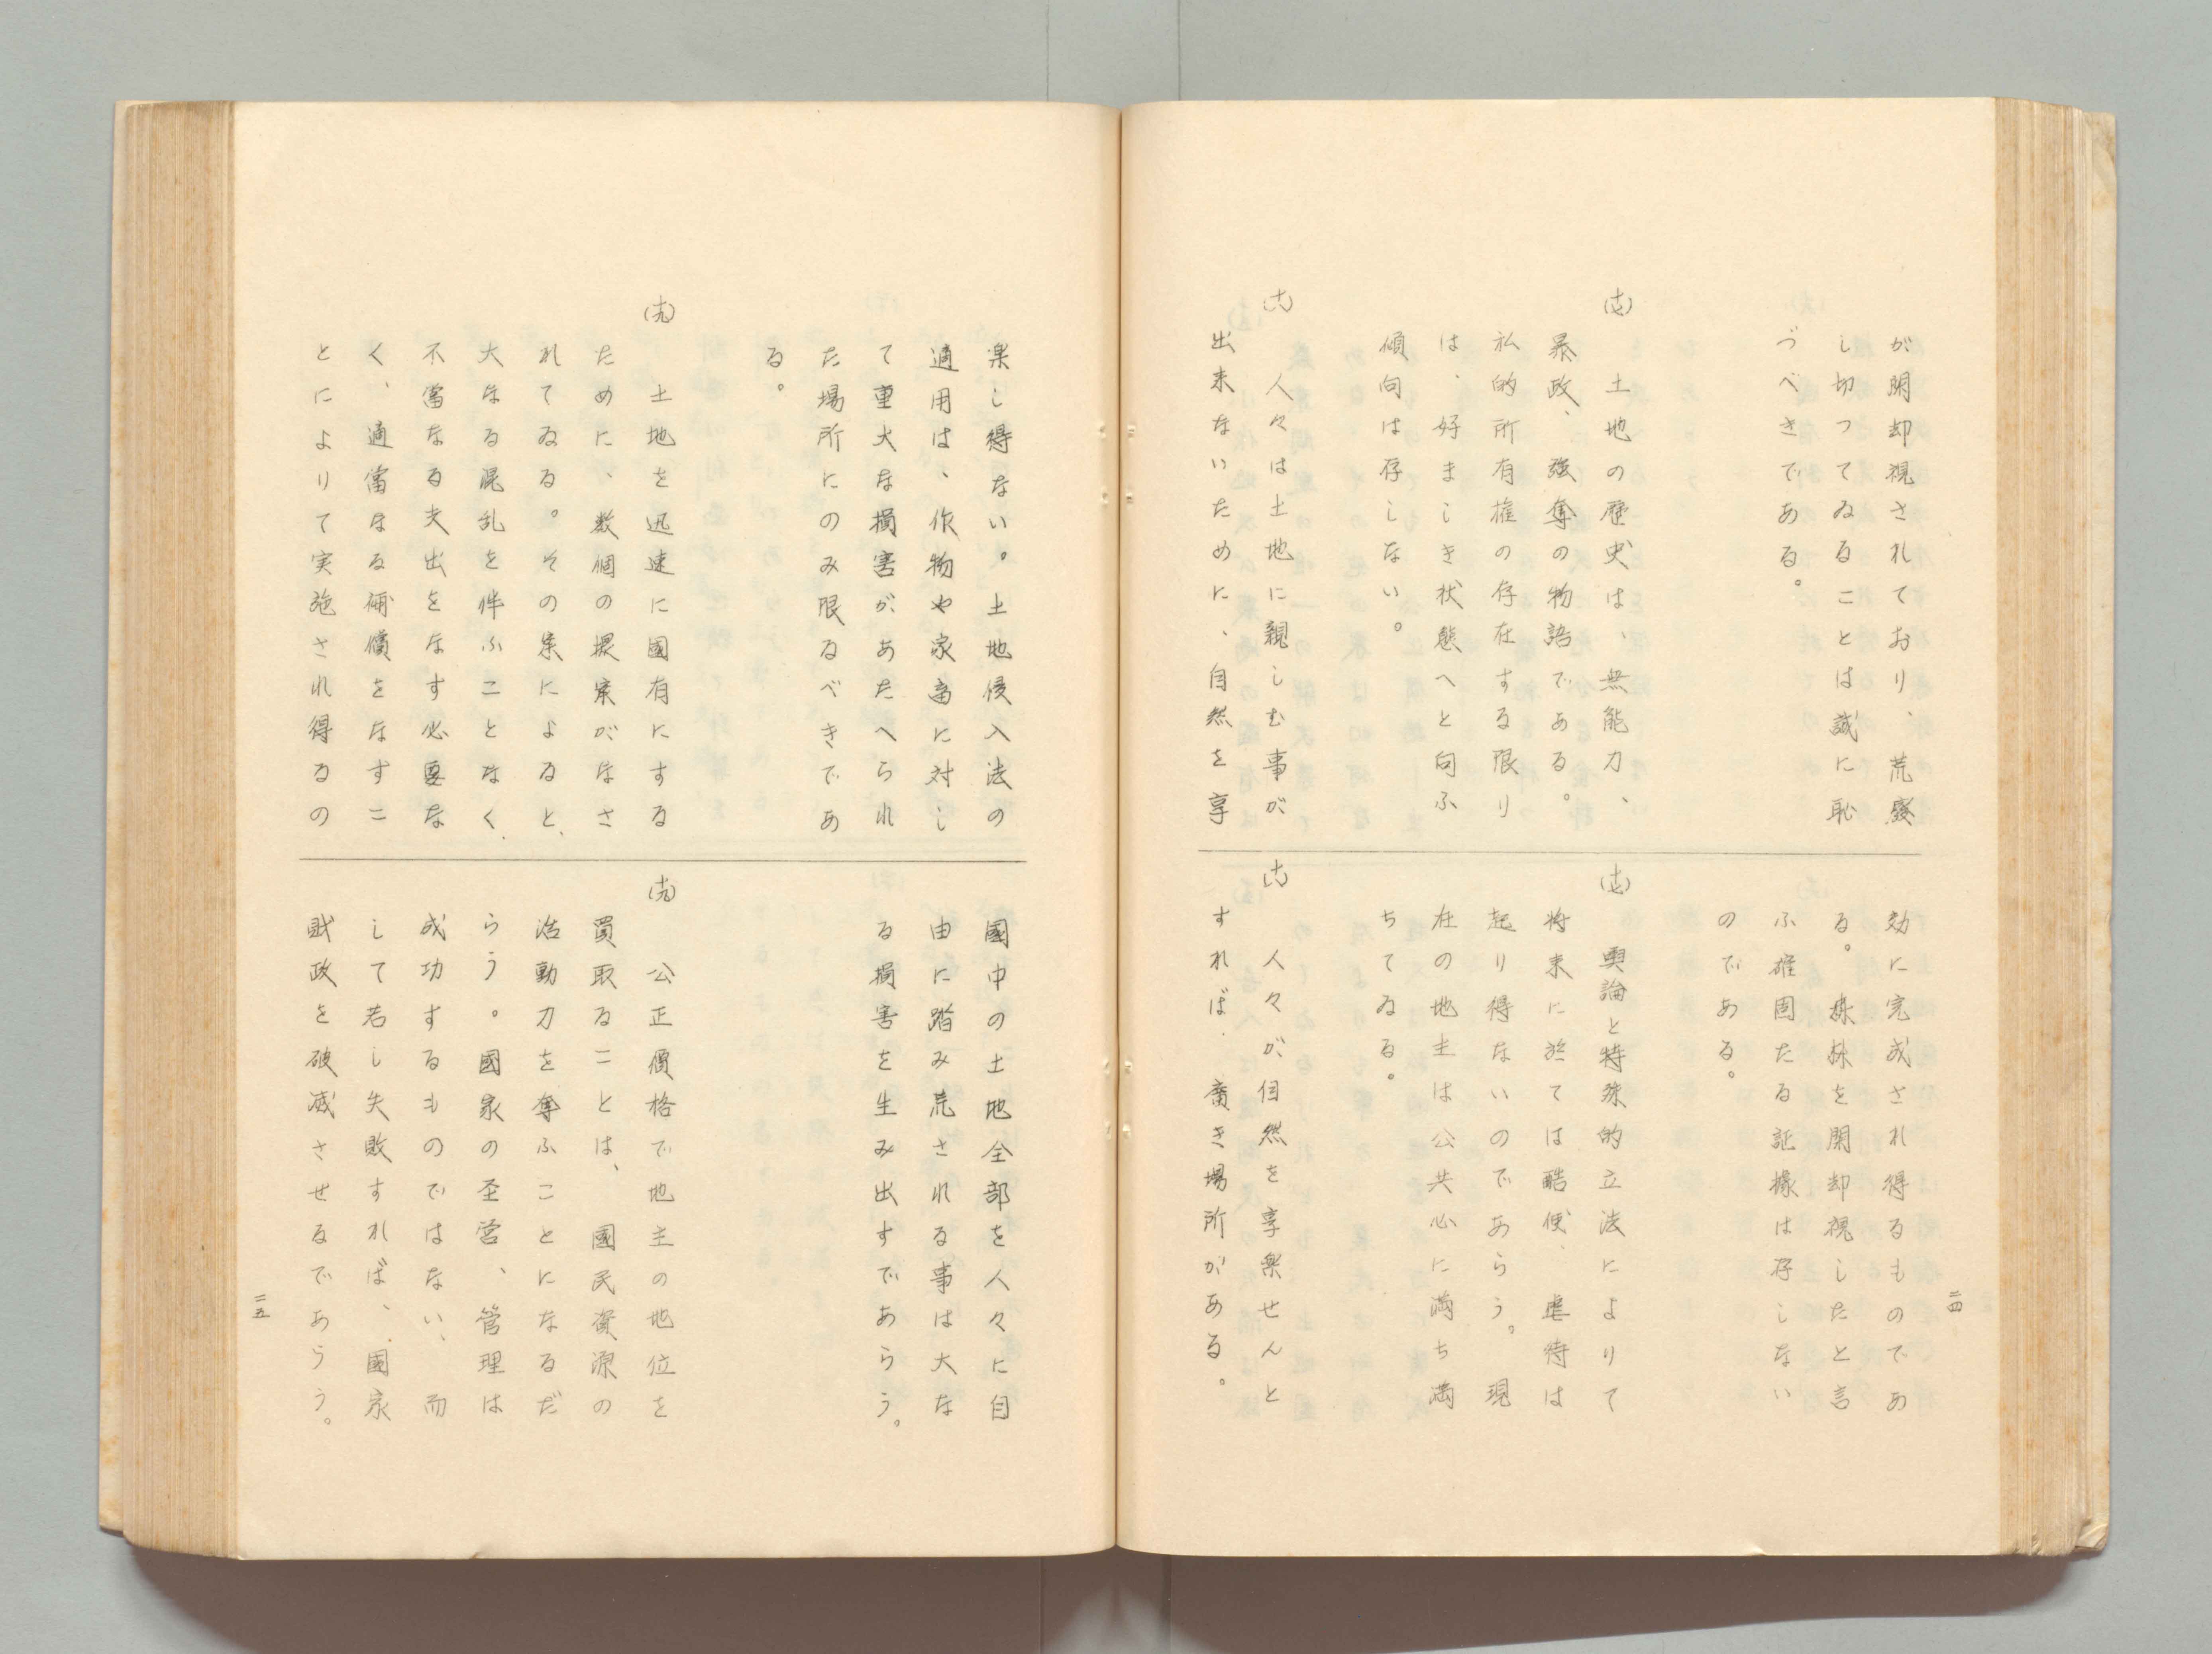 が閑却視されており、荒廢
し切つてゐることは誠に恥
づべきである。
(十七)
土地の歴史は、無能力、
暴政、強奪の物語である。
私的所有権の存在する限り
は、好ましき状態へと向ふ
傾向は存しない。
(十八)
人々は土地に親しむ事が
出来ないために、自然を享
効に完成され得るものであ
る。森林を閑却視したと言
ふ確固たる証據は存しない
のである。
(十七)
輿論と特殊的立法によりて
将来に於ては酷使、虐待は
起り得ないのであらう。現
在の地主は公共心に満ち満
ちてゐる。
(十八)
人々が自然を享楽せんと
すれば、廣き場所がある。
二四
楽し得ない。土地侵入法の
適用は、作物や家畜に対し
て重大な損害があたへられ
た場所にのみ限るべきであ
る。
(十九)
土地を迅速に國有にする
ために、数個の提案がなさ
れてゐる。その案によると、
大なる混乱を伴ふことなく、
不當なる支出をなす必要な
く、適當なる補償をなすこ
とによりて実施され得るの
國中の土地全部を人々に自
由に踏み荒される事は大な
る損害を生み出すであらう。
(十九)
公正價格で地主の地位を
買取ることは、國民資源の
活動力を奪ふことになるだ
らう。國家の圣営、管理は
成功するものではない、而
して若し失敗すれば、國家
財政を破滅させるであらう。
二五